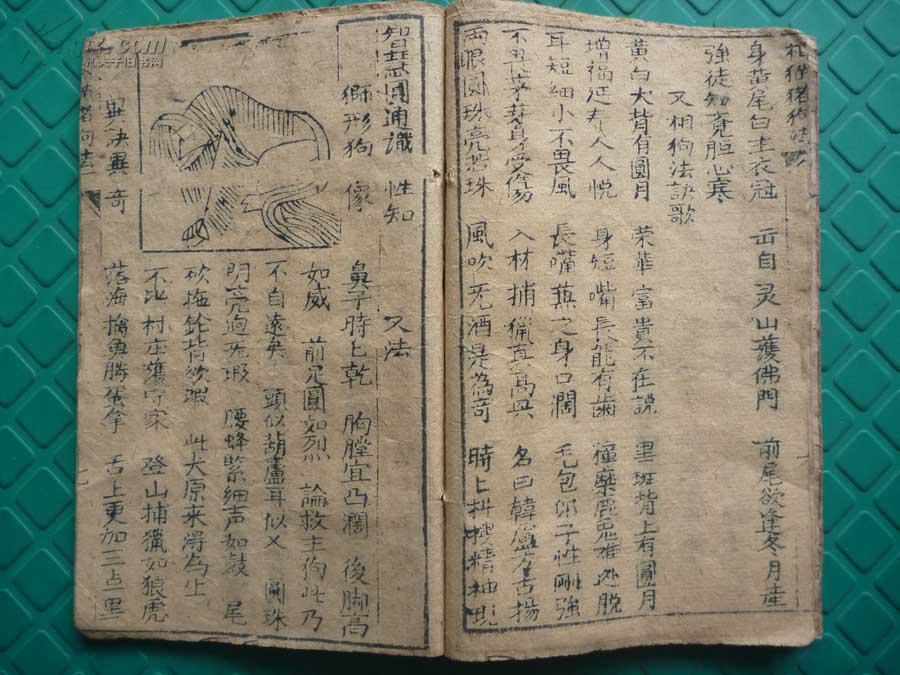 身黃尾白主衣冠 出自灵山護佛門 前尾欲逢冬月産
強徒知竟胆心寒
又相狗法訣歌
黃白大背有圓月 荣華富貴不在説 黑斑背上有圓月
增福延寿人人悦 身短嘴長能有歯 獐麋鹿兎难逃脱
耳短細小不畏風 長嘴蕉之身口濶 毛包你子性剛強
入材捕獵真高興 名曰韓盧方古揚
兩眼圓珠亮惡珠 風吹无酒是為奇 時上抖擻精神
智圓通識 性知
獅形狗像
又法
鼻子時上乾 胸膛宜凸濶 後脚高
如威 前足圓如烈 論救主狗此乃
不自遠矣 頭似葫蘆耳似乂 圓珠
明亮迥无瑕 腰蜂緊細声如鼓 尾
砍拖鈴背欲瑕 此犬原来滑為上
不比村庄護守家 登山捕獵如狼虎
落海擒魚勝蛋拿 舌上更加三点黑
異訣異奇